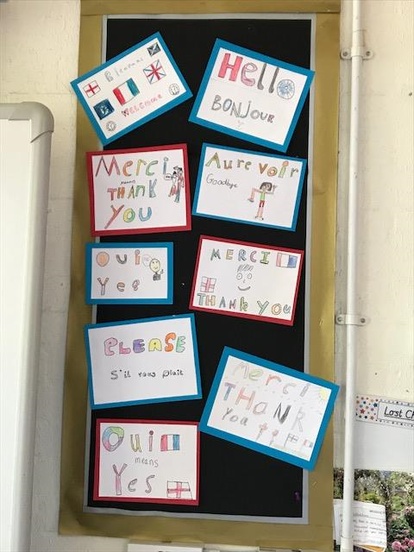 Welcome
Hello
BONJOUR
Merci
means
THANK
YOU
Au revoir
Goodbye
Oui
Yes
MERCI
THANK YOU
PLEASE
S'il vous plait
Merci
THANK
You
Oui
means
Yes
Lost Ch